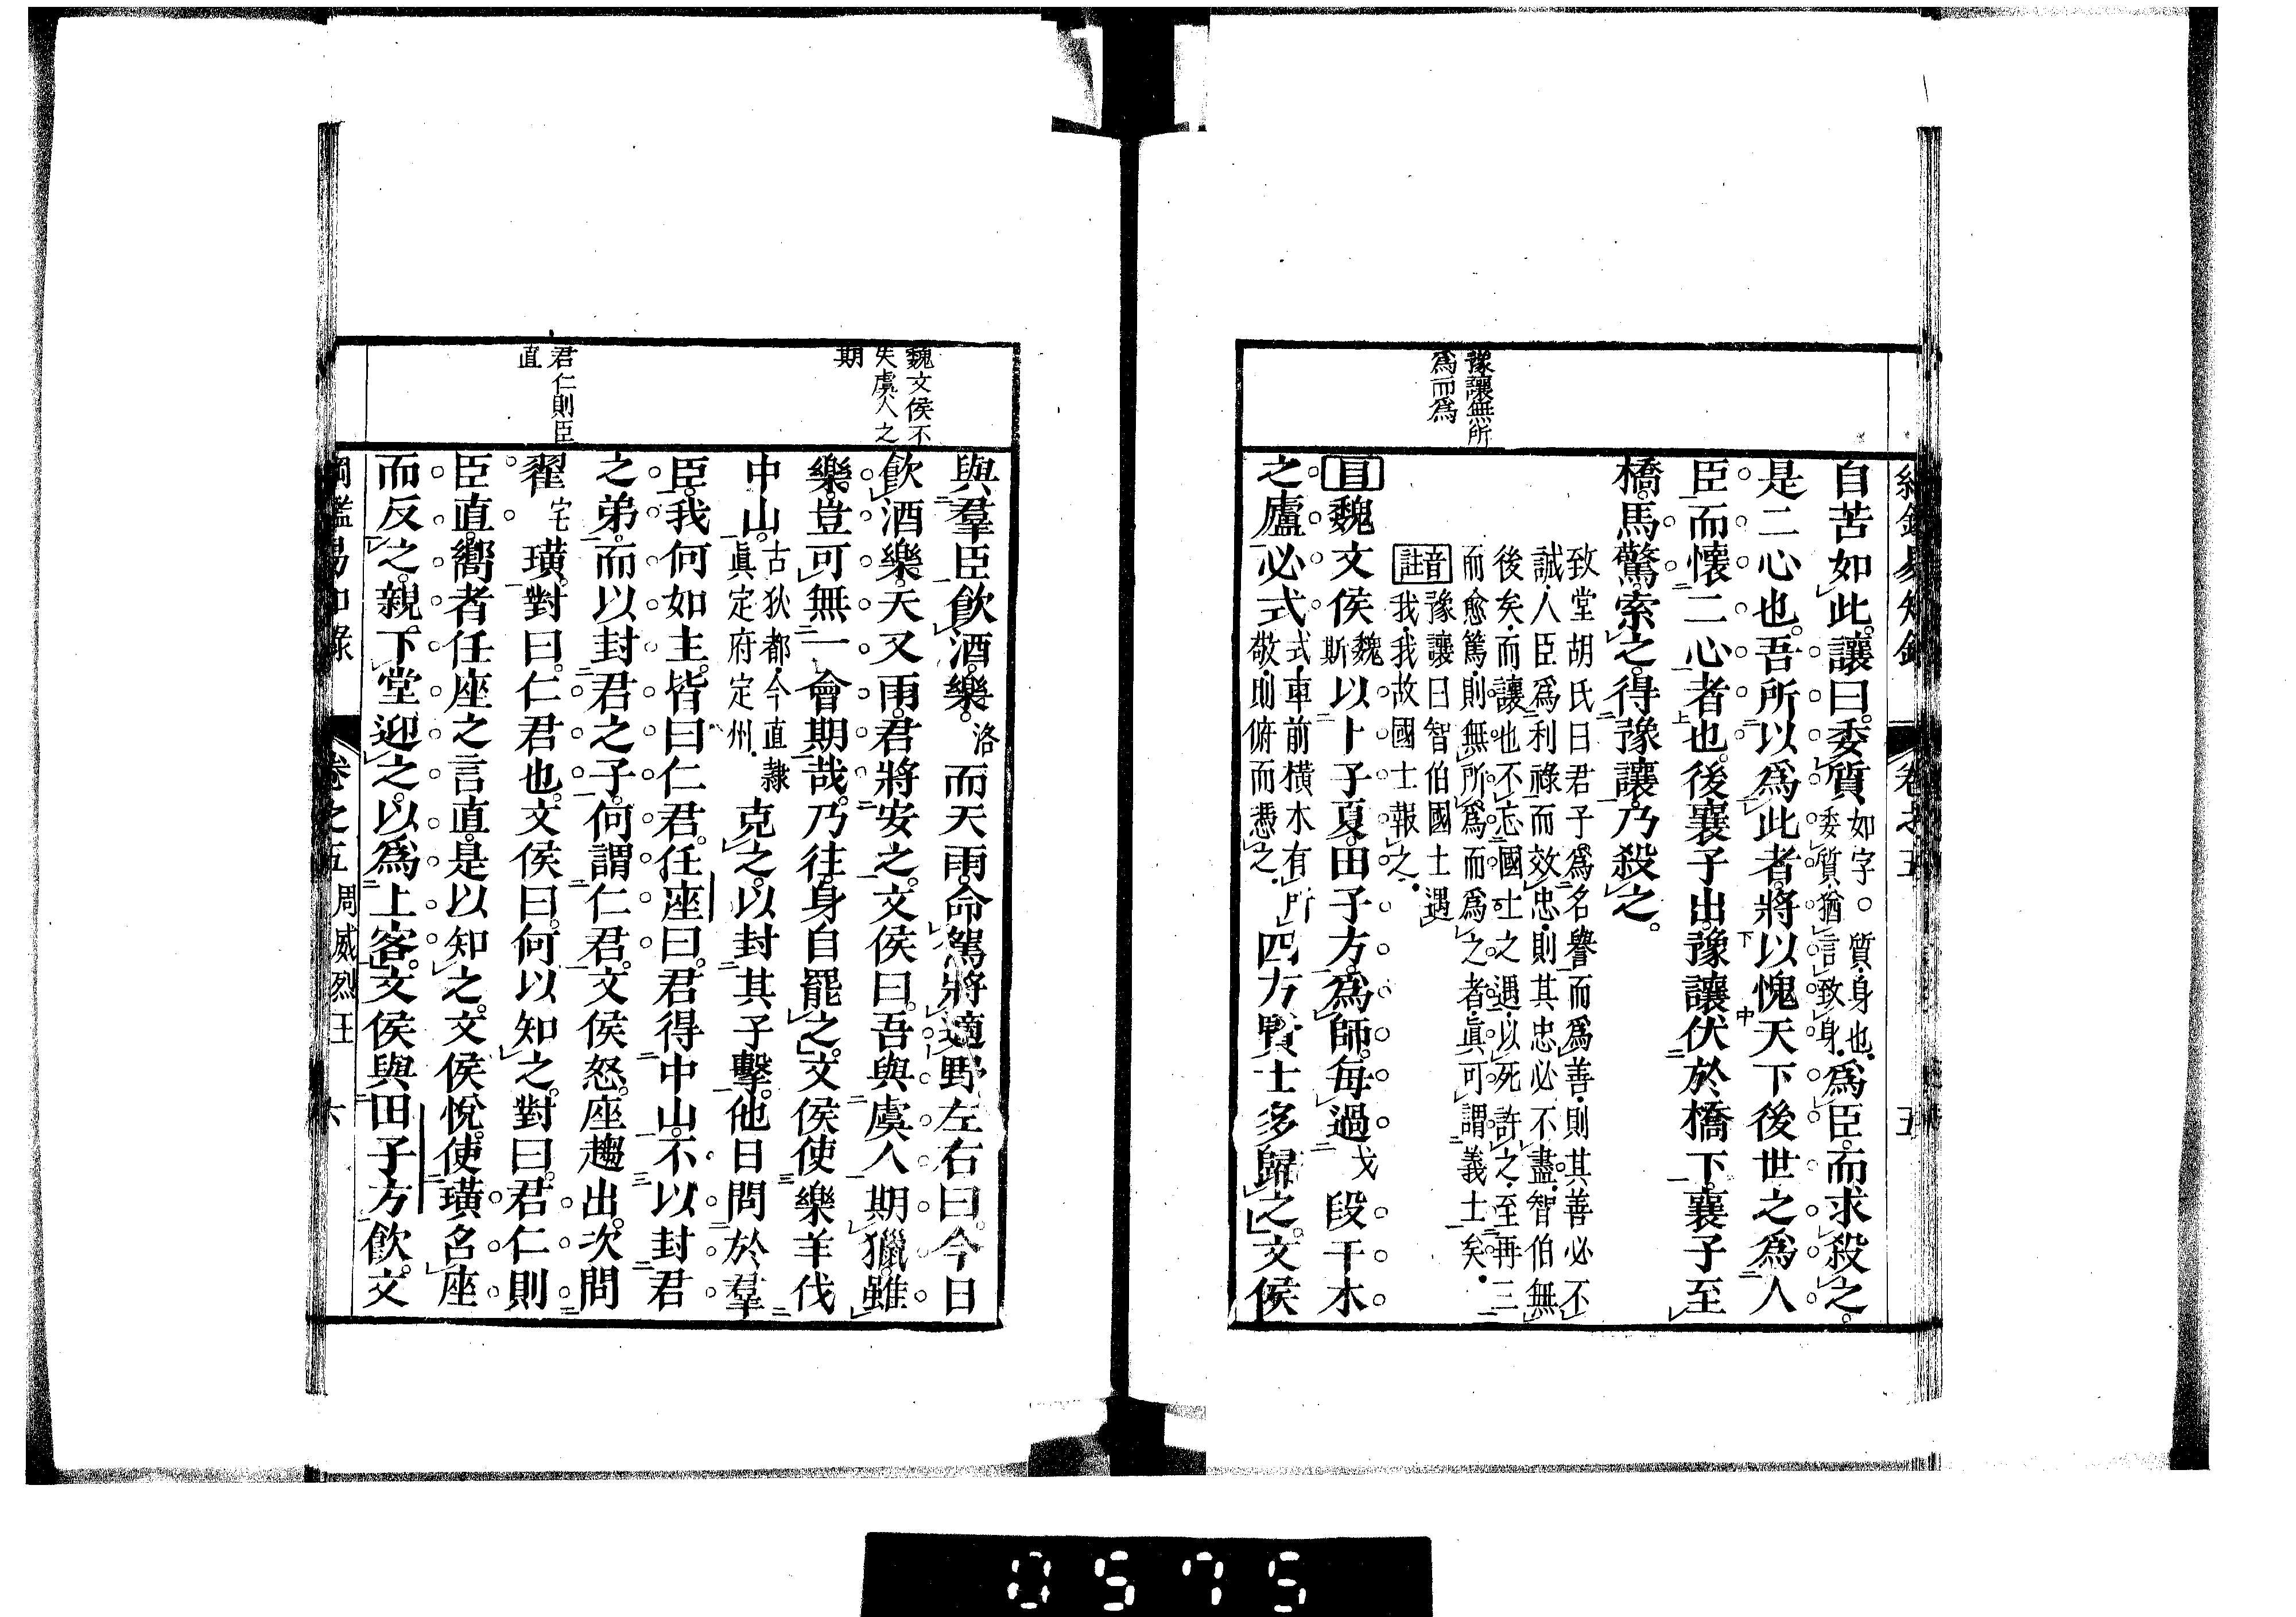 豫讓無所
爲而爲
自苦如此。讓曰。委質如字。質身也、委質猶言致身、爲臣。而求殺之。
是二心也。吾所以爲此者。將以愧天下後世之爲人
臣而懷二心者也。後襄子出。豫讓伏於橋下。襄子至
橋。馬驚。索之。得豫讓。乃殺之。
致堂胡氏曰君子爲名譽而爲善、則其善必不
誠、人臣爲利祿而效忠、則其忠必不盡、智伯無
後矣、而讓也不忘國士之遇、以死許之、至再三
而愈篤、則無所爲而爲之者、眞可謂義士矣。
音註 豫讓曰智伯國士遇我、我故國士報之。
目 魏文侯魏斯以卜子夏。田子方。爲師。每過戈段干木
之廬必式式、車前橫木有所敬、則俯而憑之、四方賢士多歸之。文侯
魏文侯不
失虞人之
期
君仁則臣
直
與羣臣飲酒。樂。洛而天雨。命駕將適野。左右曰。今日
飲酒樂。天又雨。君將安之。文侯曰。吾與虞人期獵。雖
樂。豈可無一會期哉。乃往。身自罷之。文侯使樂羊伐
中山。古狄都、今直隸眞定府定州、克之。以封其子擊。他日問於羣
臣。我何如主。皆曰仁君。任座曰。君得中山。不以封君
之弟。而以封君之子。何謂仁君。文侯怒。座趨出。次問
翟宅璜。對曰。仁君也。文侯曰。何以知之。對曰。君仁則
臣直。嚮者任座之言直。是以知之。文侯悅。使璜召座
而反之。親下堂迎之。以爲上客。文侯與田子方飮。文
綱鑑易知錄 卷之五 周威烈王 六
0575